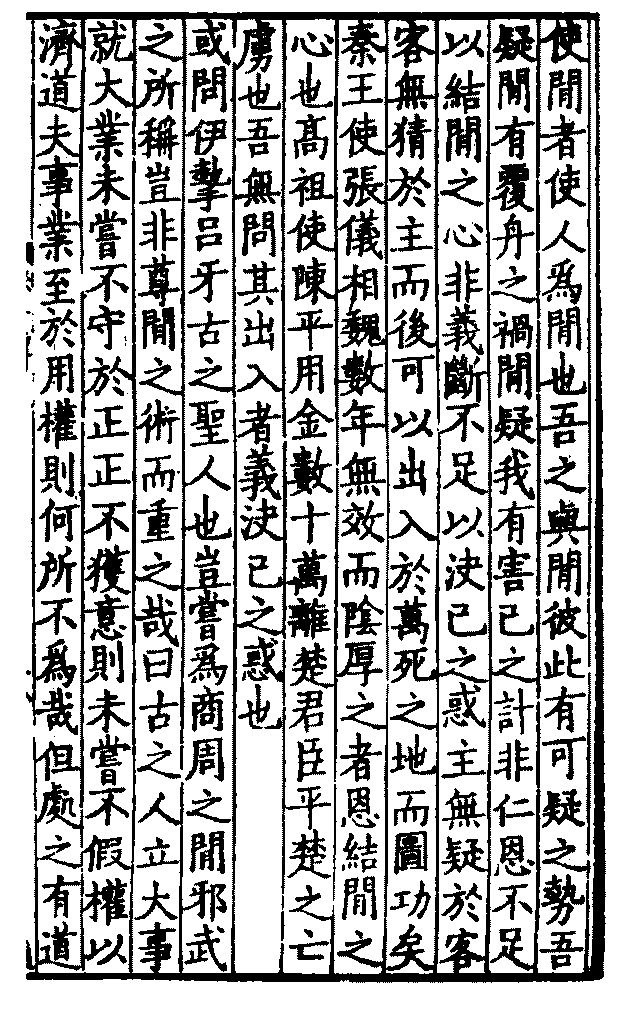 使閒者使人爲閒也吾之與閒彼此有可疑之勢吾
疑閒有覆舟之禍閒疑我有害己之計非仁恩不足
以結閒之心非義斷不足以決己之惑主無疑於客
客無猜於主而後可以出入於萬死之地而圖功矣
秦王使張儀相魏數年無效而陰厚之者恩結閒之
心也高祖使陳平用金數十萬離楚君臣平楚之亡
虜也吾無問其出入者義決己之惑也
或問伊摯呂牙古之聖人也豈嘗爲商周之閒邪武
之所稱豈非尊閒之術而重之哉曰古之人立大事
就大業未嘗不守於正正不獲意則未嘗不假權以
濟道夫事業至於用權則何所不爲哉但處之有道